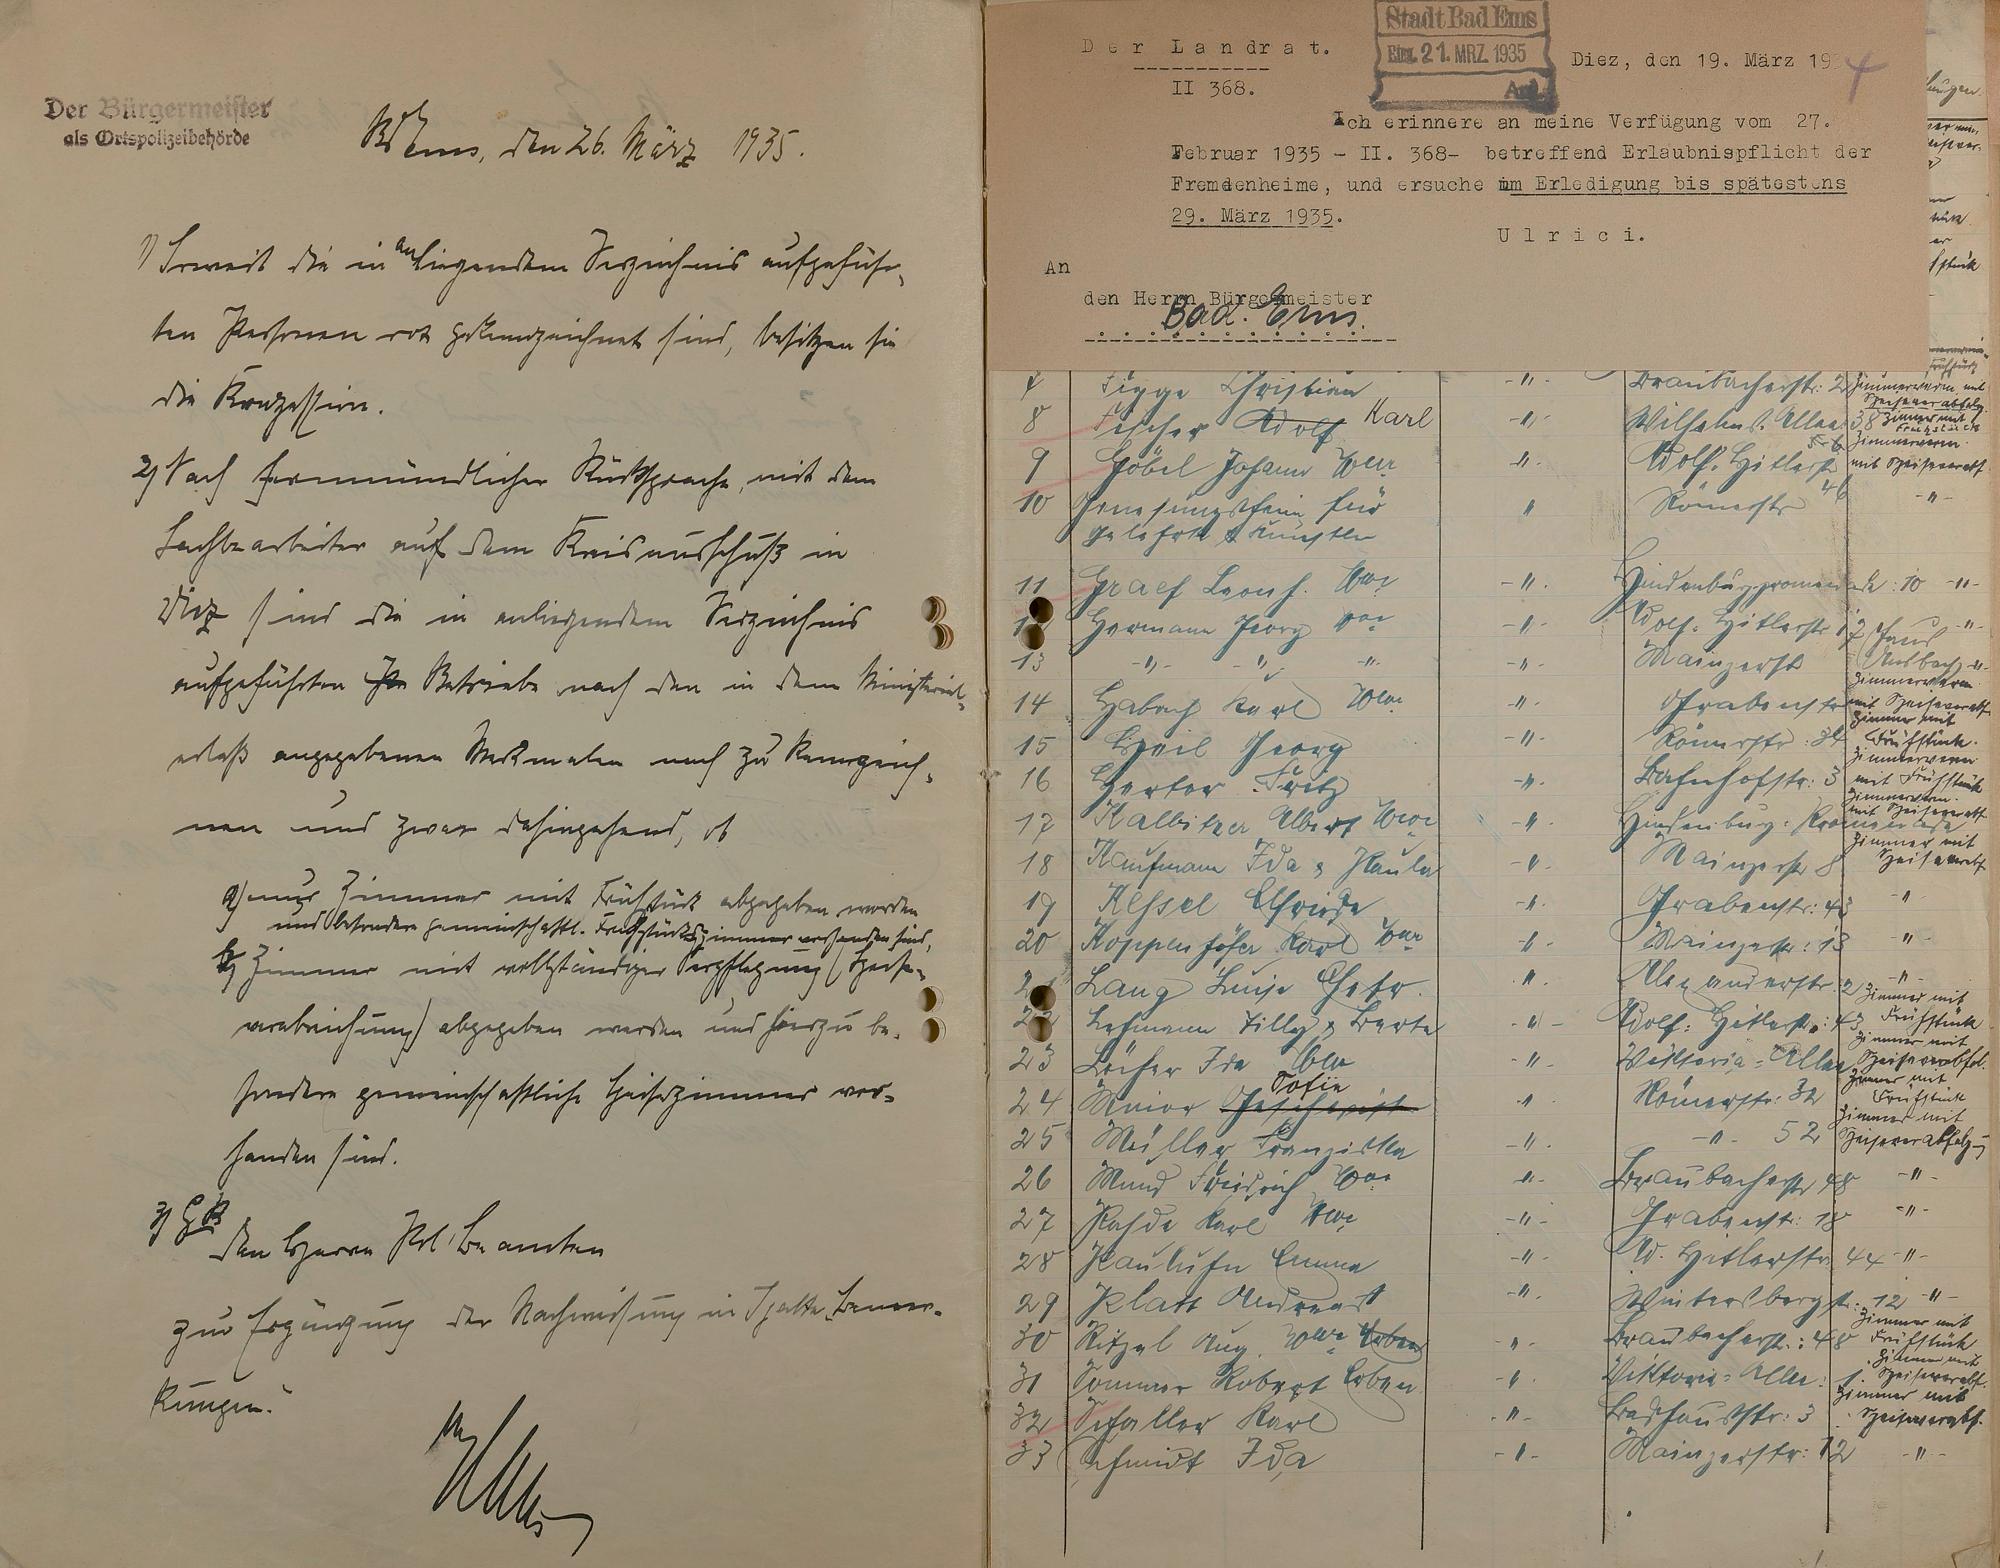 Der Bürgermeister
als Ortspolizeibehörde
Bad Ems, den 26. März 1935.
1) Soweit die in anliegendem Verzeichnis aufgeführ-
ten Personen rot gekennzeichnet sind, besitzen sie
die Konzession.
2) Nach fernmündlicher Rücksprache, mit dem
Sachbearbeiter auf dem Kreisausschuß in
Diez sind die in anliegendem Verzeichnis
aufgeführten Betriebe nach den in dem Ministerial-
erlaß angegebenen Merkmalen noch zu kennzeich-
nen und zwar dahingehend, ob
a) nur Zimmer mit Frühstück abgegeben werden
und besondere gemeinschaftl. Frühstückszimmer vorhanden sind,
b) Zimmer mit vollständiger Verpflegung (Speise-
verabreichung) abgegeben werden und hierzu be-
sondere gemeinschaftliche Speisezimmer vor-
handen sind.
3) GR
den Herrn Pol. Beamten
zur Ergänzung der Nachweisung in Spalte Bemer-
kungen.
Der Landrat.
II 368.
Stadt Bad Ems
Eing. 21. MRZ. 1935
Anl.
Diez, den 19. März 193
Ich erinnere an meine Verfügung vom 27.
Februar 1935 - II. 368- betreffend Erlaubnispflicht der
Fremdenheime, und ersuche um Erledigung bis spätestens
29. März 1935.
Ulrici.
An
den Herrn Bürgermeister
Bad Ems.
Figge Christian -"- Braubacherstr: 2 Zimmerverm. mit Speiseverabfolg.
8 Fischer Adolf Karl -"- Wilhelms Allee 38 Zimmer mit Frühstück
9 Göbel Johann Wwe -"- Adolf-Hitlerstr Zimmerverm. mit Speiseverabf.
10 Genesungsheim für " Römerstr 46 -"-
Gelehrte & Künstler
11 Graef Leonh. Wwe -"- Hindenburgpromenade: 10 -"-
12 Hermann Georg Wwe -"- Adolf-Hitlerstr -"-
13 -"- -"- -"- -"- Mainzerstr Haus Ansbach -"-
14 Habach Karl Wwe -"- Grabenstr Zimmerverm. mit Speiseverabf.
15 Heil Georg -"- Römerstr: 34 Zimmer mit Frühstück.
16 Herter Fritz -"- Bahnhofstr: 3 Zimmerverm mit Frühstück
17 Kalbitzer Albert Wwe -"- Hindenburg-Promenade Zimmerverm. mit Speiseverabf.
18 Kaufmann Ida & Paula -"- Mainzerstr 8 Zimmer mit Speiseverabf
19 Kessel Elfriede -"- Grabenstr: 43 -"-
20 Koppenhöfer Karl Wwe -"- Mainzerstr: 13 -"-
21 Lang Luise Ehefr. -"- Alexanderstr: 2 -"-
22 Lehmann Tilly & Berta -"- Adolf-Hitlerstr: 43 Zimmer mit Frühstück
23 Löcher Ida Wwe -"- Viktoria-Allee Zimmer mit Speiseverabfol.
24 Maior Geschwist Sofie -"- Römerstr: 32 Zimmer mit Frühstück
25 Müller Franziska -"- -"- 52 Zimmer mit Speiseverabfolg
26 Mund Friedrich Wwe -"- Braubacherstr 48 -"-
27 Karl Wwe -"- Grabenstr: 18 -"-
28 Emma -"- Ad. Hitlerstr 44 -"-
29 Platt Andreas -"- Wintersbergstr: 12 -"-
30 Ritzel Aug. Wwe Erben -"- Braubacherstr: 48 Zimmer mit Frühstück
31 Sommer Robert Erben -"- Viktoria-Allee: 1. Zimmer mit Speiseverabf.
32 Schaller Karl -"- Badhausstr: 3 Zimmer mit Speiseverabf.
33 Schmidt Ida -"- Mainzerstr: 12 -"-